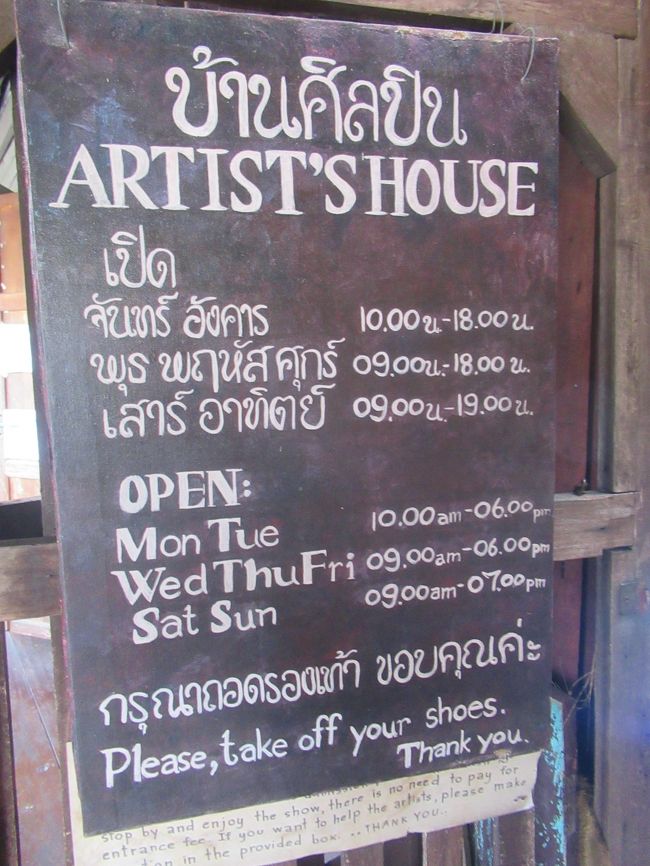 บ้านศิลปิน
ARTIST'S HOUSE
เปิด
จันทร์ อังคาร 10.00 น.-18.00 น.
พุธ พฤหัส ศุกร์ 09.00น.-18.00 น.
เสาร์ อาทิตย์ 09.00น.-19.00 น.
OPEN:
Mon Tue 10.00am-06.00pm
Wed Thu Fri 09.00am-06.00pm
Sat Sun 09.00am-07.00pm
กรุณาถอดรองเท้า ขอบคุณค่ะ
Please, take off your shoes.
Thank you.
stop by and enjoy the show, there is no need to pay for
entrance fee. If you want to help the artists, please make
in the provided box. .. THANK YOU..